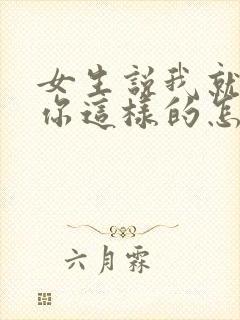 女生説我就
你這樣的怎
六月霖